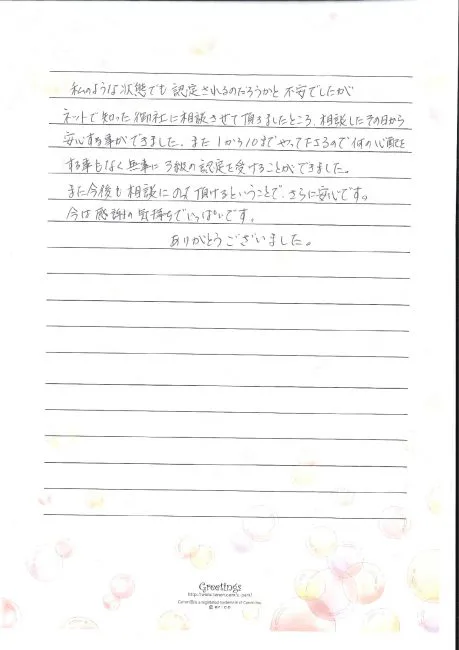 私のような状態でも認定されるのだろうかと不安でしたが
ネットで知った御社に相談させて頂きましたところ、相談したその日から
安心する事ができました。また1から10までやって下さるので何の心配を
する事もなく無事に3級の認定を受けることができました。
また今後も相談にのって頂けるということで、さらに安心です。
今は感謝の気持ちでいっぱいです。
ありがとうございました。
Greetings